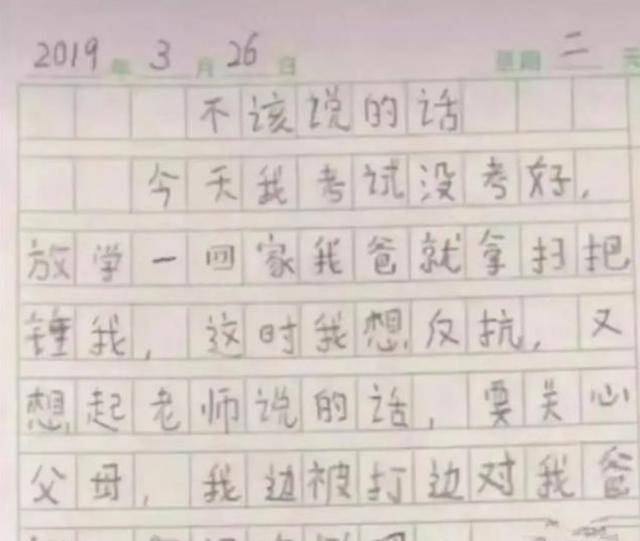 2019年 3月 26日 星期二 天
不该说的话
今天我考试没考好,
放学一回家我爸就拿扫把
锤我,这时我想反抗,又
想起老师说的话,要关心
父母,我边被打边对我爸